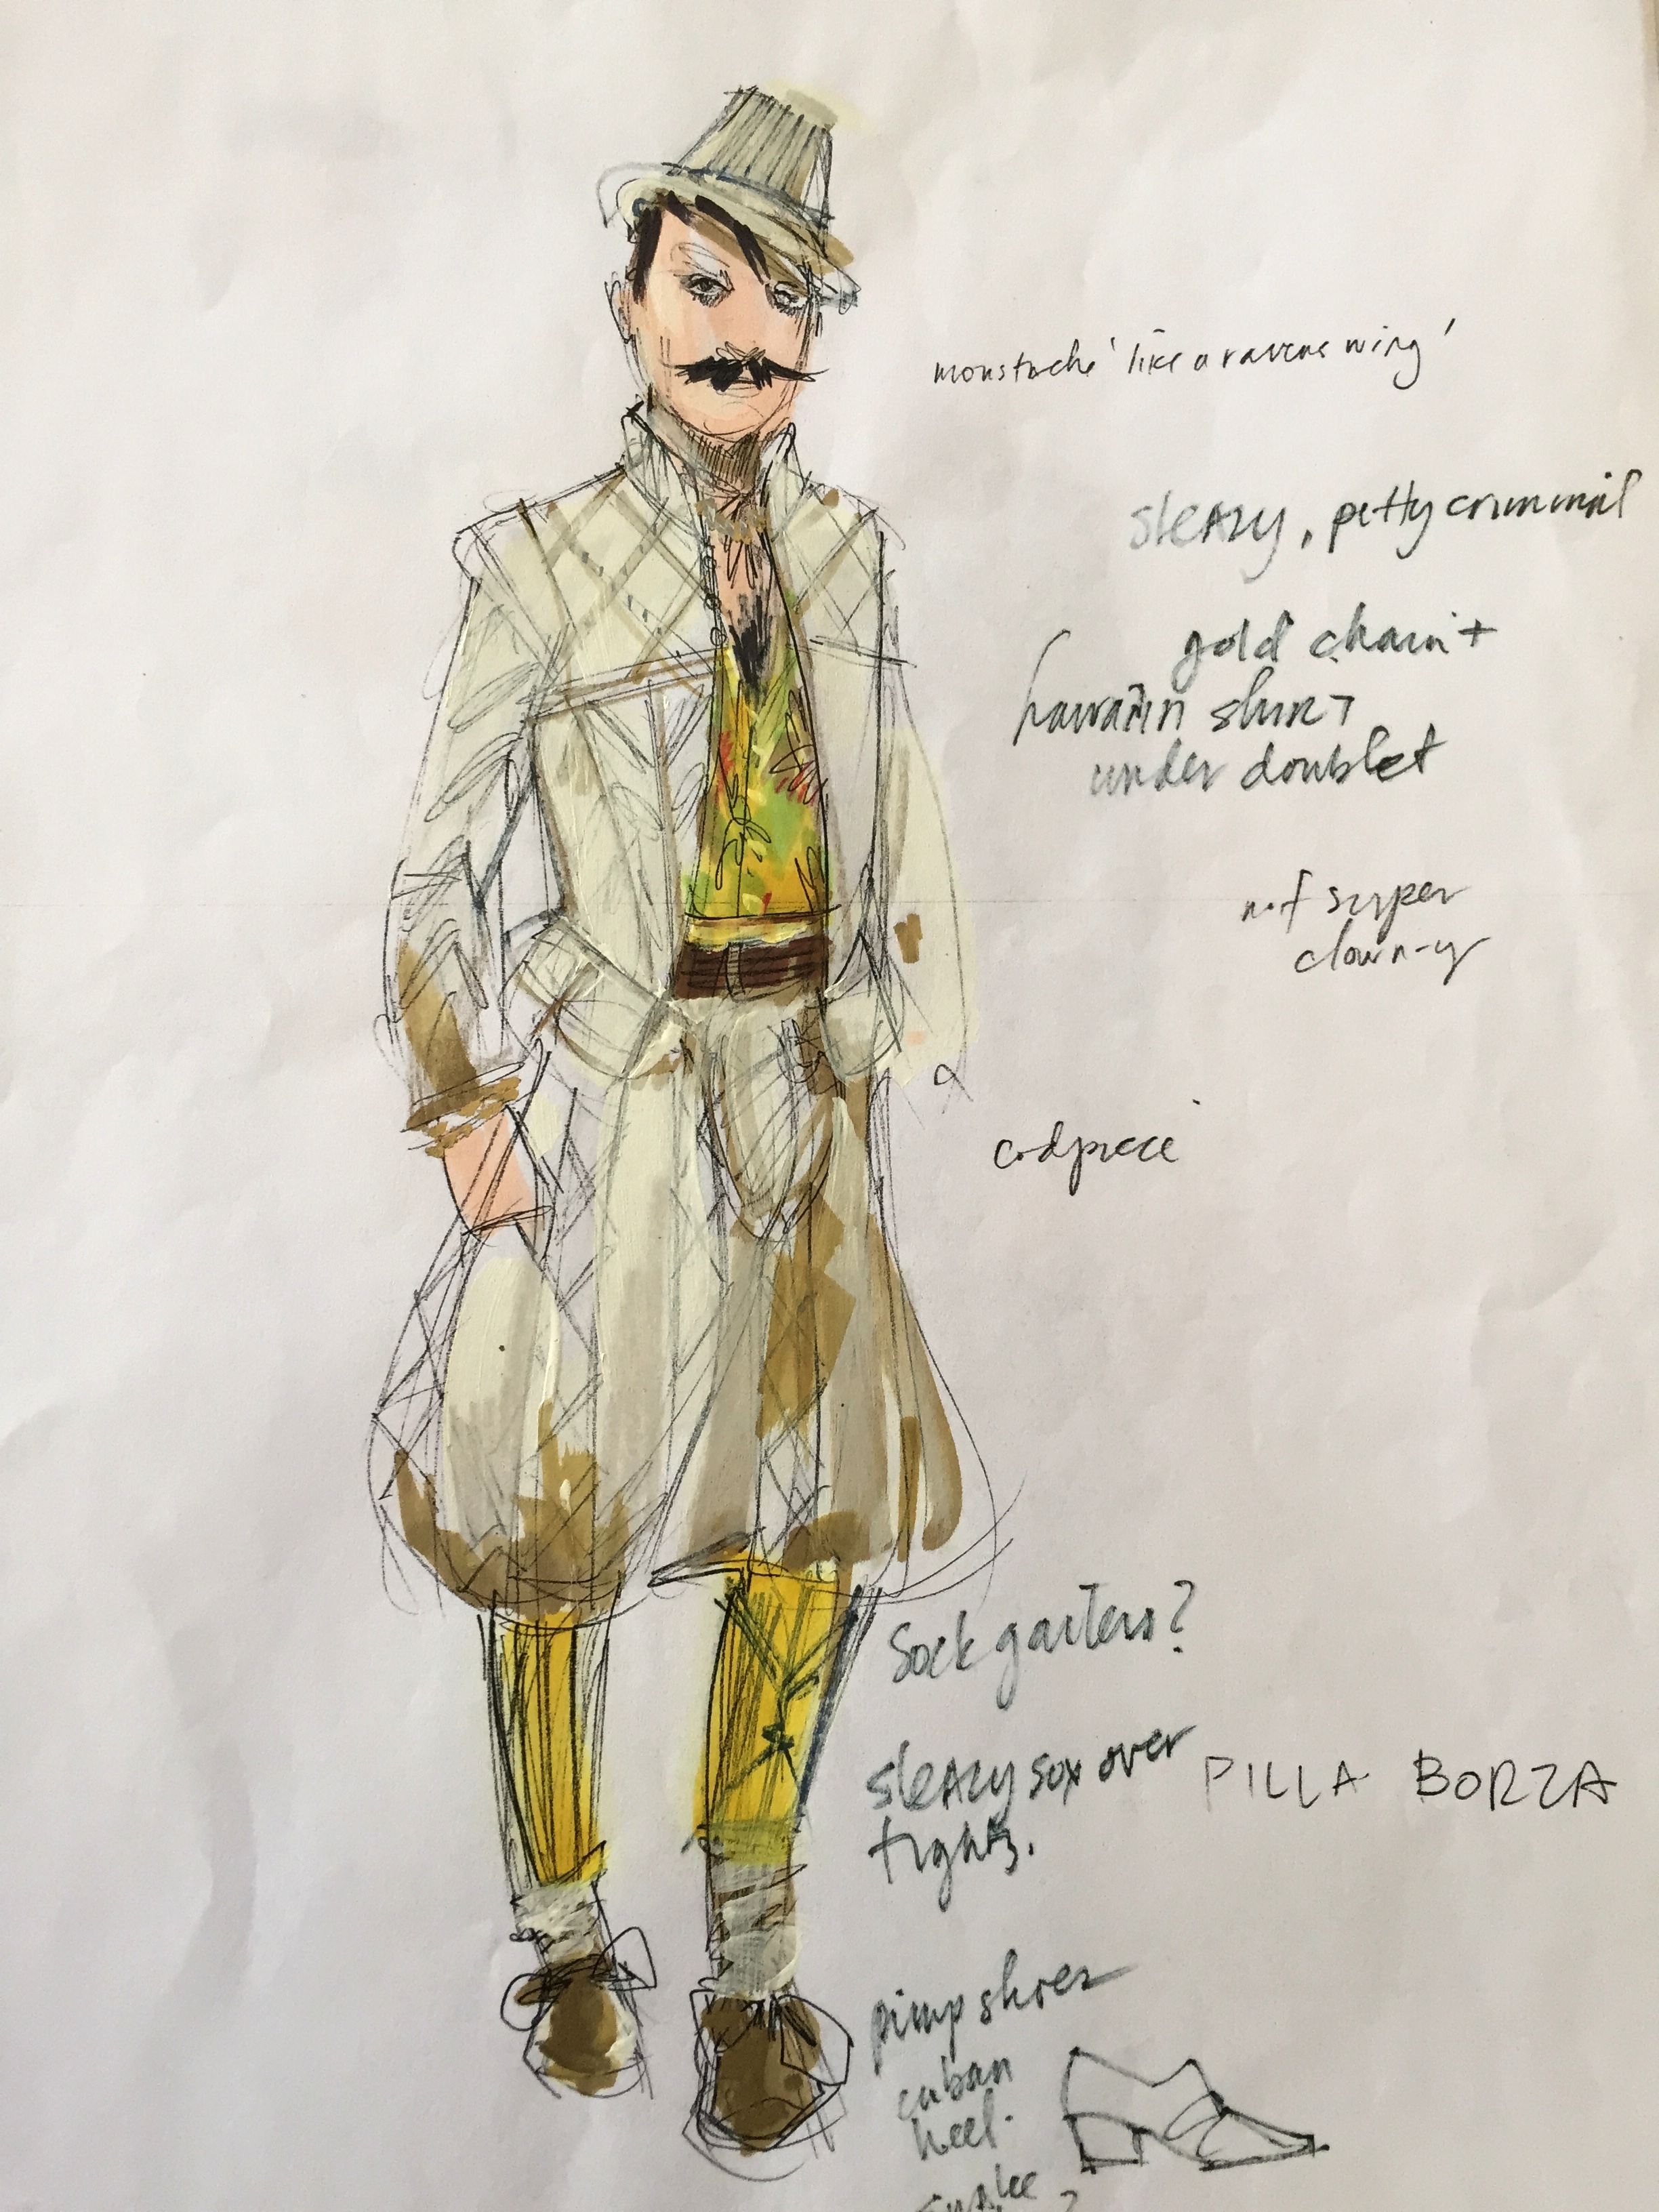 moustache 'like a ravens wing'
sleazy, petty criminal
gold chain +
hawaiin shirt
under doublet
not super
clown-y
codpiece
Sock garters?
sleazy sox over
tights.
PILLA BORZA
pimp shoes
cuban
heel.
?